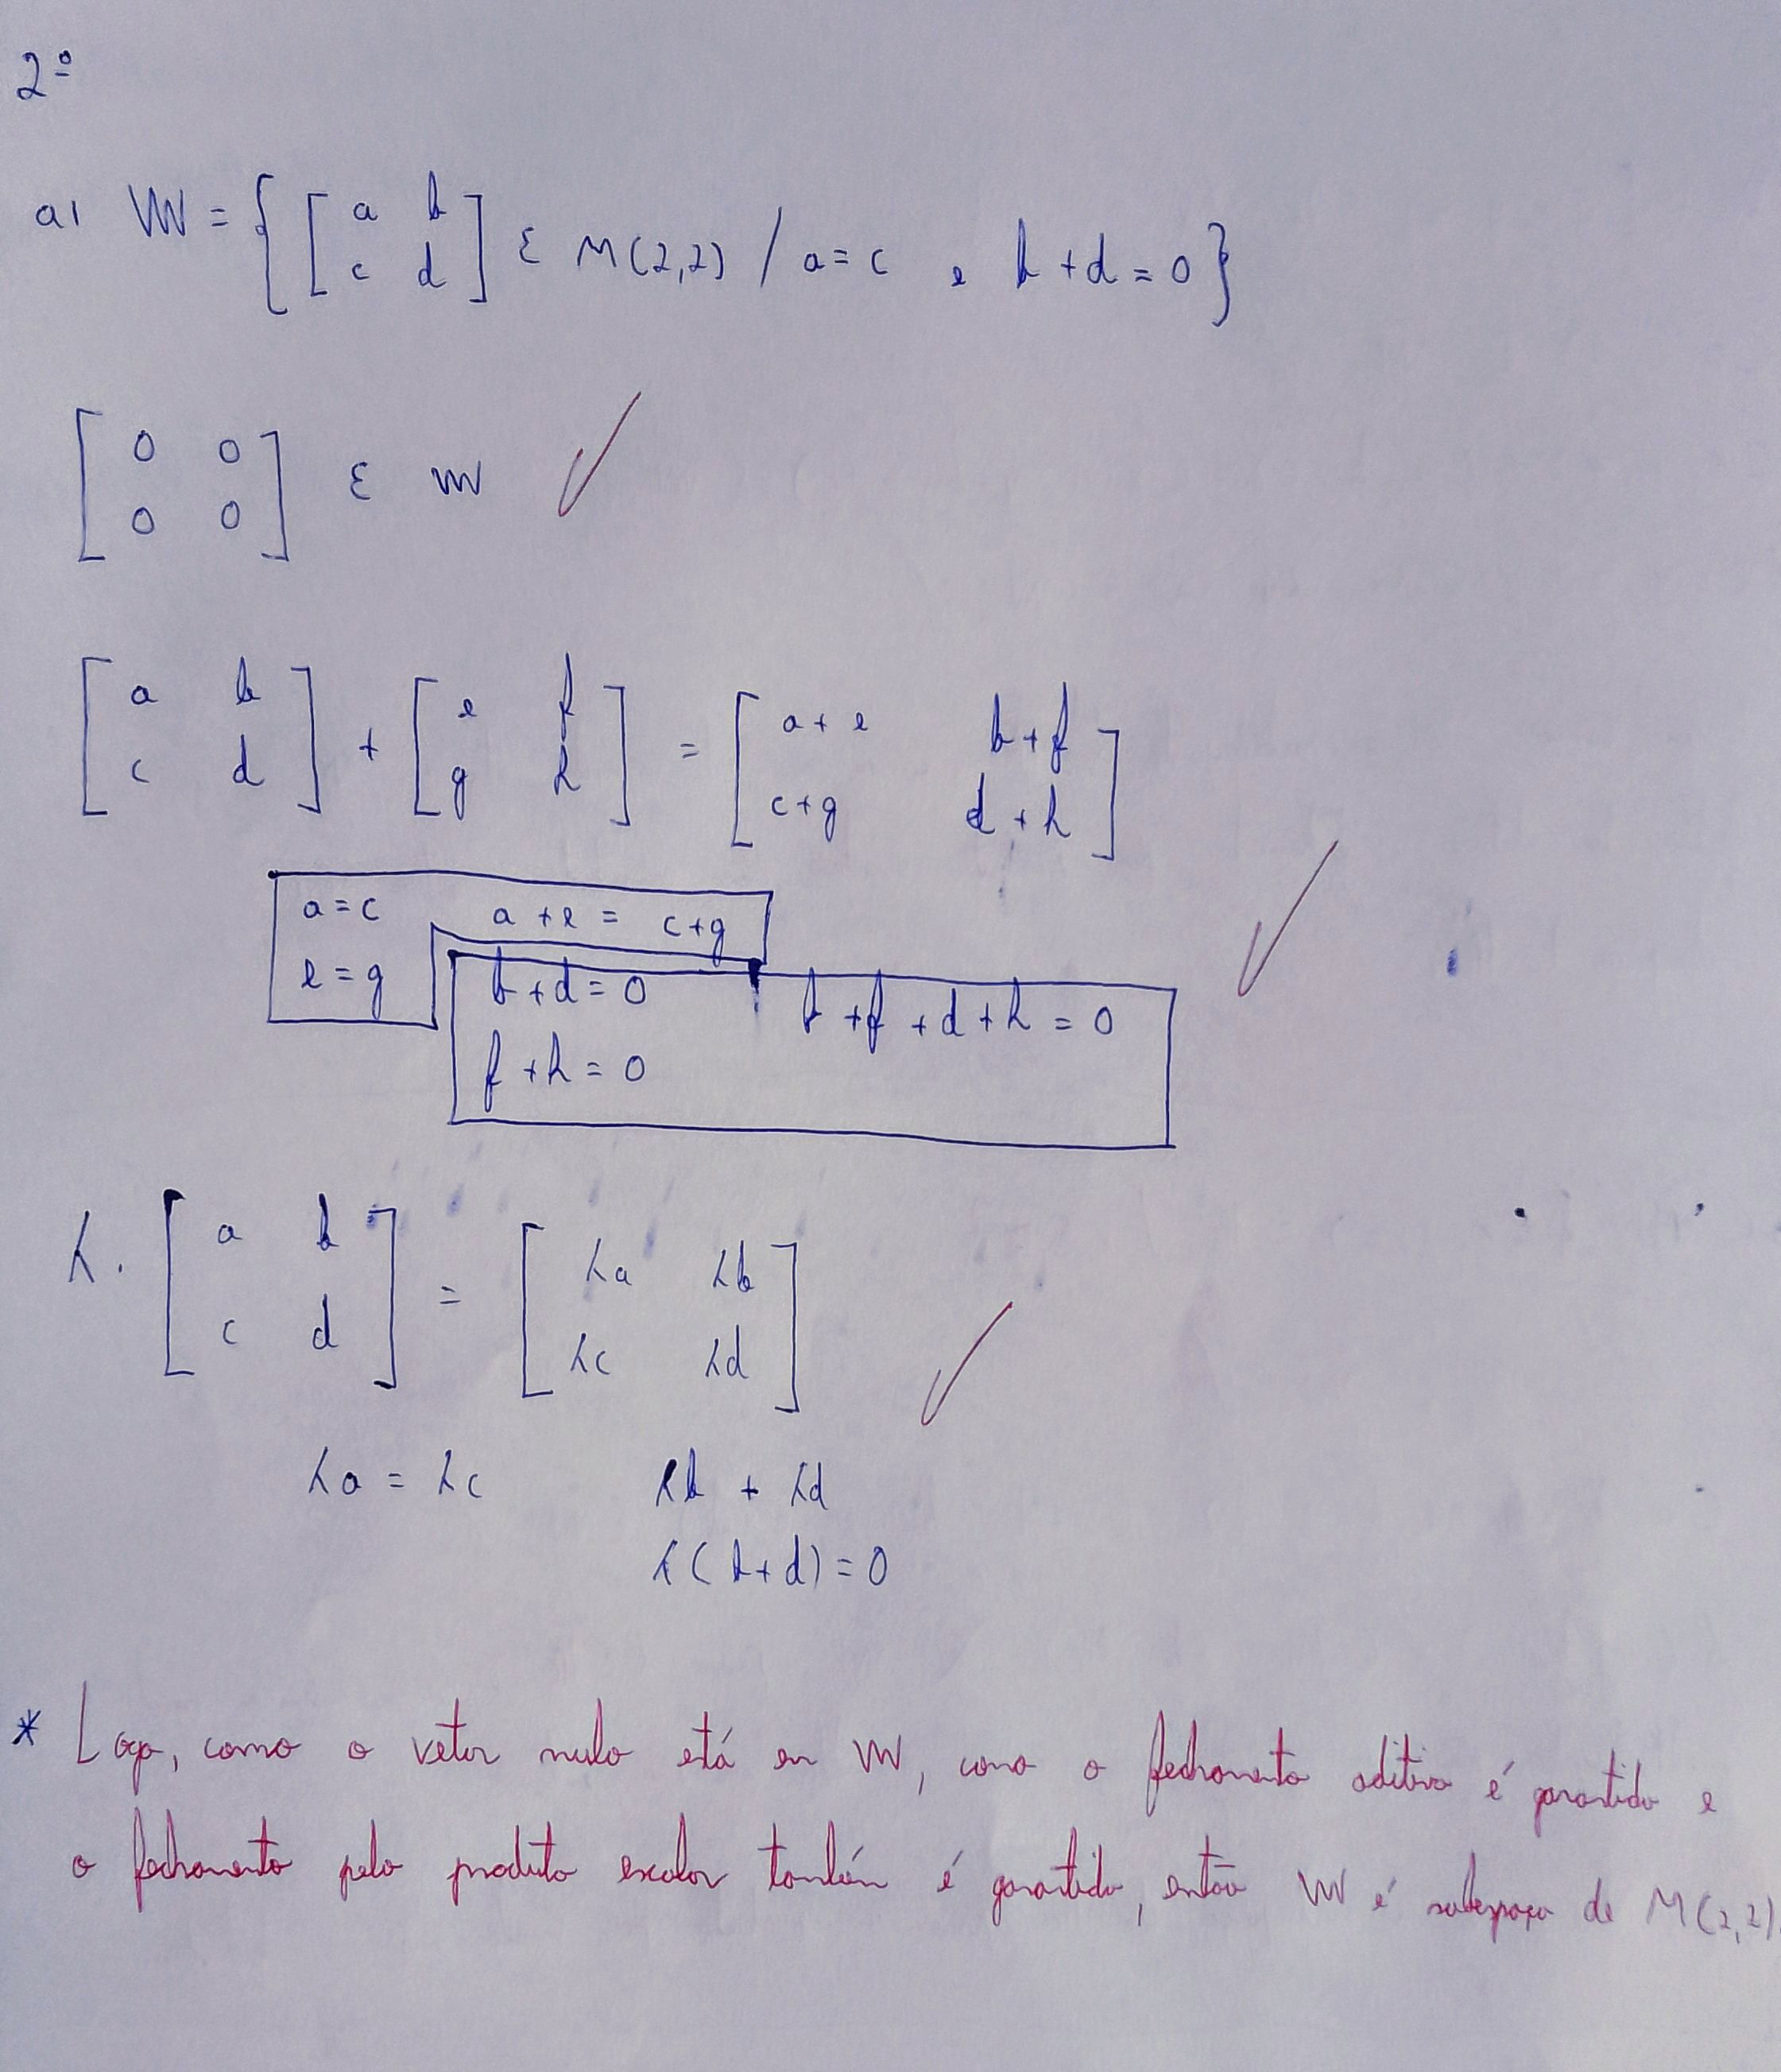 2º
a) W = { [ a b
c d ] ε M(2,2) / a = c e b + d = 0 }
[ 0 0
0 0 ] ε W ✓
[ a b
c d ] + [ e f
g h ] = [ a + e b + f
c + g d + h ]
a = c a + e = c + g
e = g
b + d = 0 b + f + d + h = 0 ✓
f + h = 0
λ . [ a b
c d ] = [ λa λb
λc λd ] ✓
λa = λc λb + λd
λ(b + d) = 0
* Logo, como o vetor nulo está em W, como o fechamento aditivo é garantido e
o fechamento pelo produto escalar também é garantido, então W é subespaço de M(2,2).